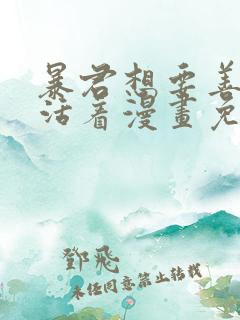 暴君想要善
活着漫畫免
鄧飛
未经同意禁止转载